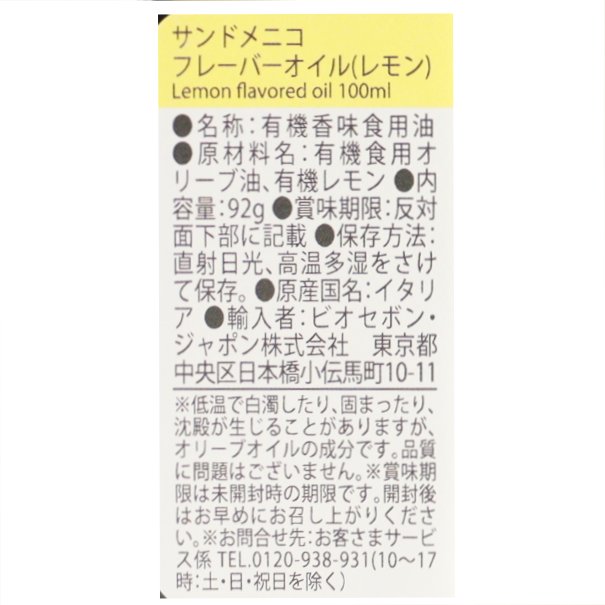 サンドメニコ
フレーバーオイル(レモン)
Lemon flavored oil 100ml
●名称:有機香味食用油
●原材料名:有機食用オ
リーブ油、有機レモン ●内
容量:92g ●賞味期限:反対
面下部に記載 ●保存方法:
直射日光、高温多湿をさけ
て保存。 ●原産国名:イタリ
ア ●輸入者:ビオセボン・
ジャポン株式会社　東京都
中央区日本橋小伝馬町10-11
※低温で白濁したり、固まったり、
沈殿が生じることがありますが、
オリーブオイルの成分です。品質
に問題はございません。※賞味期
限は未開封時の期限です。開封後
はお早めにお召し上がりくださ
い。※お問合せ先:お客さまサービ
ス係 TEL.0120-938-931(10～17
時:土・日・祝日を除く)